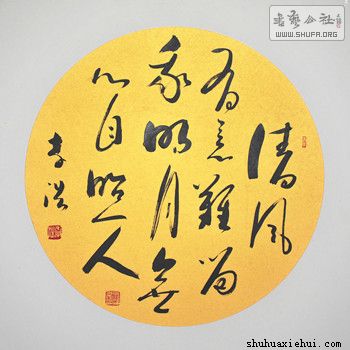 書藝公社
WWW.SHUFA.ORG
清風
有意難留
我明月無
心自照人
李
shuhuaxiehui.com